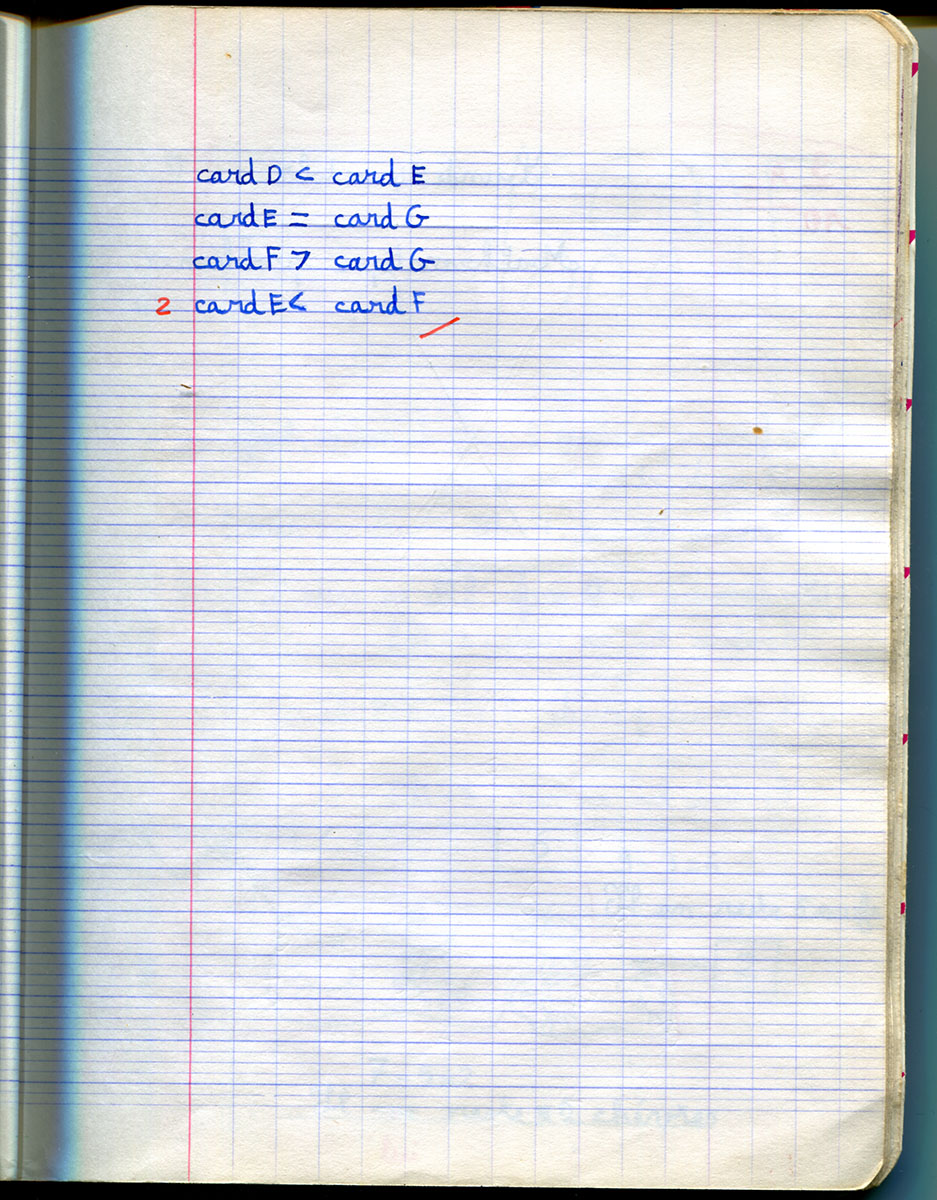 card D < card E
card E = card G
card F > card G
2 card E < card F